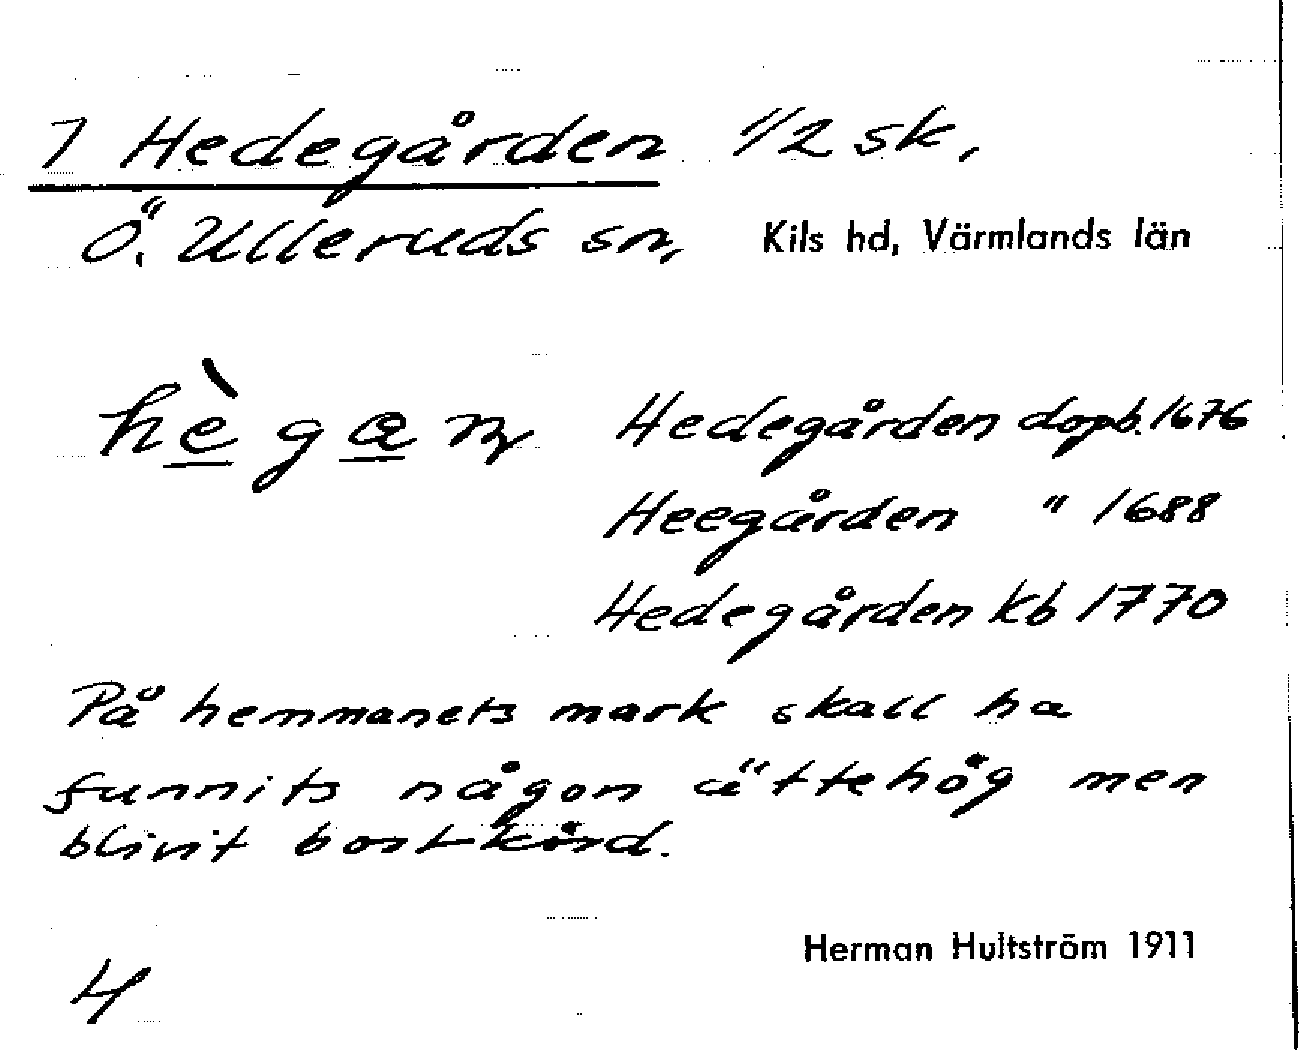 1 Hedegården 1/2 sk,
Ö. Ulleruds sn, Kils hd, Värmlands län
hègan Hedegården dopb. 1676
Heegården " 1688
Hedegården kb 1770
På hemmanets mark skall ha
funnits någon ättehög men
blivit bortkörd.
Herman Hultström 1911
4